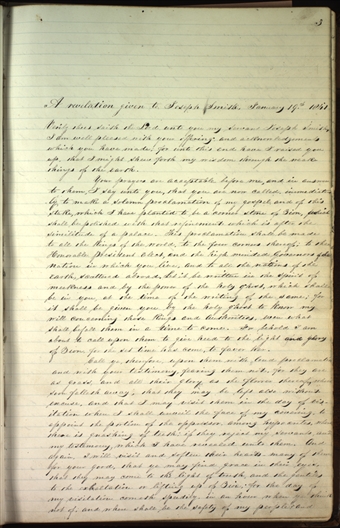 3
A revelation given to Joseph Smith, January 19th 1841
Verily thus saith the Lord unto you my servant Joseph Smith,
I am well pleased with your offering and acknowledgements
which you have made, for unto this end have I raised you
up, that I might shew forth my wisdom through the weak
things of the earth.
Your prayers are acceptable before me, and in answer
to them, I say unto you, that you are now called immediate-
ly to make a solemn proclamation of my gospel, and of this
stake which I have planted to be a corner stone of Zion, which
shall be polished with that refinement which is after the
similitude of a palace. This proclamation shall be made
to all the kings of the world, to the four corners thereof; to the
Honorable President elect, and the high minded Governors of the
nation in which you live, and to all the nations of the
earth, scattered abroad. Let it be written in the spirit of
meekness and by the power of the Holy Ghost, which shall
be in you, at the time of the writing of the same; for
it shall be given you by the Holy Ghost to know my
will concerning those kings and authorities, even what
shall befall them in a time to come. For behold I am
about to call upon them to give heed to the light and glory
of Zion, for the set time has come, to favor her.
Call ye, upon them with loud proclamation
and with your testimony, fearing them not, for they are
as grass, and all their glory as the flower thereof, which
soon falleth away, that they may be left also without
excuse, and that I may visit them in the day of vis-
itation when I shall unveil the face of my covering, to
appoint the portion of the oppressor among hypocrites, where
there is gnashing of teeth, if they reject my servants and
my testimony, which I have revealed unto them. And
again, I will visit and soften their hearts, many of them
for your good, that ye may find grace in their eyes,
that they may come to the light of truth, and the gentiles
to the exaltation or lifting up of Zion, for the day of
my visitation cometh speedily, in an hour when ye think
not of, and where shall be the safety of my people, and